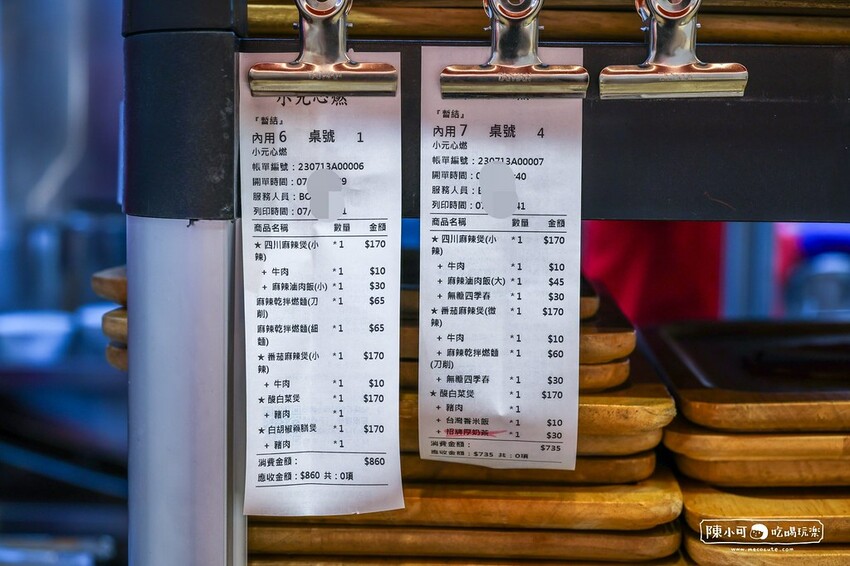 小元心燃
『暫結』
內用 6 桌號 1
小元心燃
帳單編號：230713A00006
開單時間：07/ 9
服務人員：BO
列印時間：07/ 1
商品名稱 數量 金額
★ 四川麻辣煲(小辣) *1 $170
+ 牛肉 *1 $10
+ 麻辣滷肉飯(小) *1 $30
麻辣乾拌燃麵(刀削) *1 $65
麻辣乾拌燃麵(細麵) *1 $65
★ 番茄麻辣煲(小辣) *1 $170
+ 牛肉 *1 $10
★ 酸白菜煲 *1 $170
+ 豬肉 *1
★ 白胡椒豬煲 *1 $170
+ 豬肉 *1
消費金額： $860
應收金額：$860 共：0項
『暫結』
內用 7 桌號 4
小元心燃
帳單編號：230713A00007
開單時間：0 :40
服務人員：B
列印時間：07 41
商品名稱 數量 金額
★ 四川麻辣煲(小辣) *1 $170
+ 牛肉 *1 $10
+ 麻辣滷肉飯(大) *1 $45
+ 無糖四季春 *1 $30
★ 番茄麻辣煲(微辣) *1 $170
+ 牛肉 *1 $10
+ 麻辣乾拌燃麵(刀削) *1 $60
+ 無糖四季春 *1 $30
★ 酸白菜煲 *1 $170
+ 豬肉 *1
+ 台灣香米飯 *1 $10
+ 招牌厚奶茶 *1 $30
消費金額： $735
應收金額：$735 共：0項
陳小可 吃喝玩樂
www.macocute.com